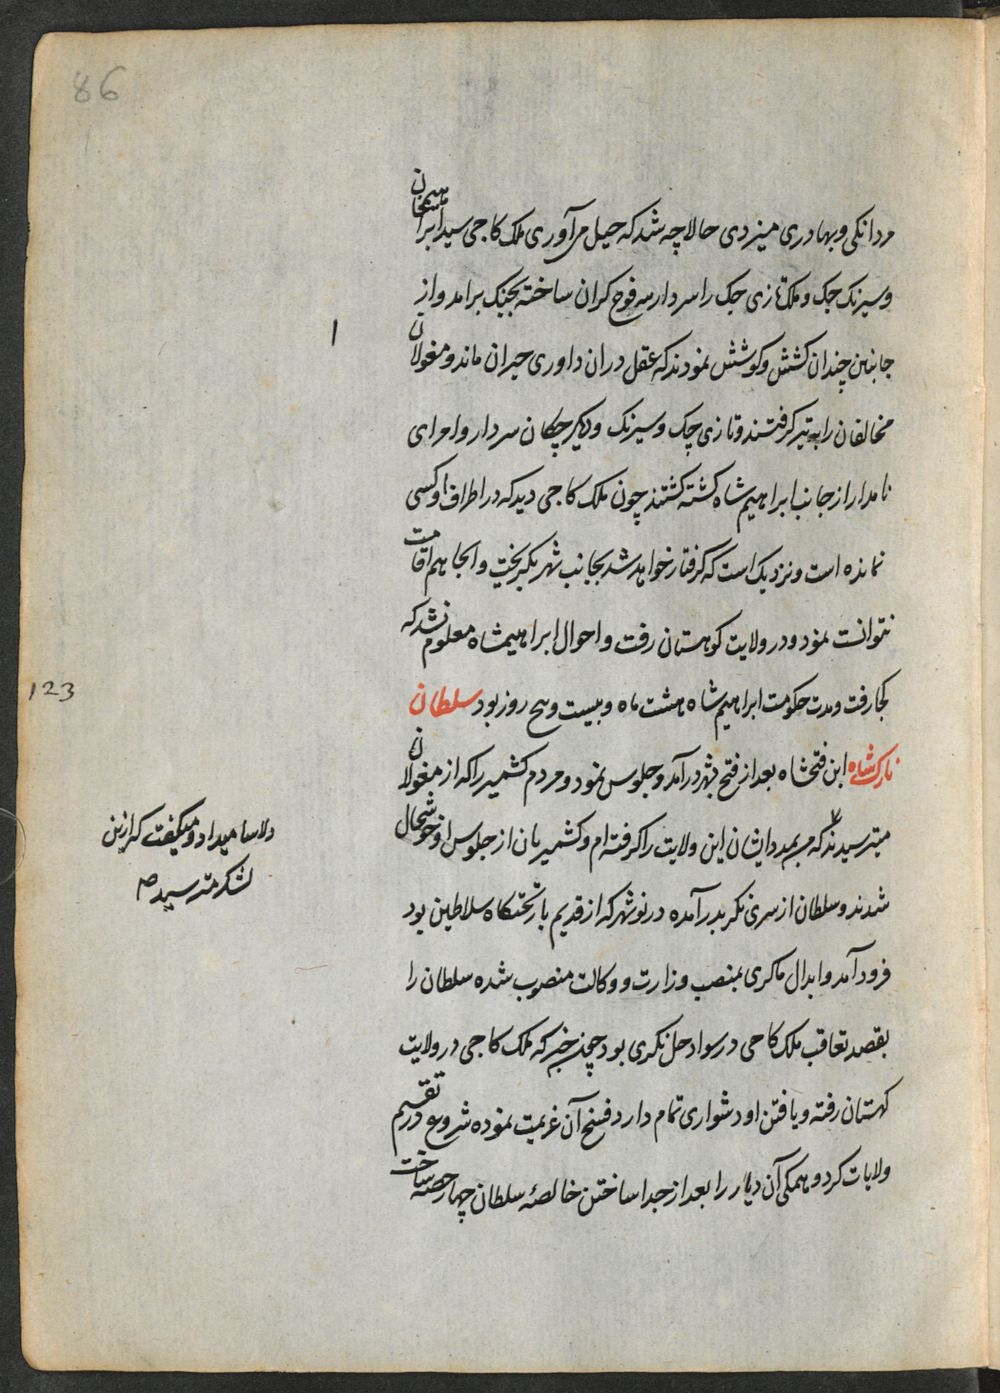 86
مردانکی و بهادری میزدی حالا چه شد که حیل می‌آوری ملک کاجی سید ابراهیم خان
و سیزنک چک و ملک تازی چک را سردار سه فوج کران ساخته بجنک برامد و از
جانبین چندان کشش و کوشش نمودند که عقل دران داوری حیران ماند و مغولان
مخالفان را به تیر کرفتند و تازی چک و سیزنک و دیکر چکان سردار و امرای
نامدار از جانب ابراهیم شاه کشته کشتند چون ملک کاجی دید که در اطراف او کسی
نمانده است و نزدیک است که کرفتار خواهد شد بجانب شهر بکریخت و انجا هم اقامت
نتوانست نمود و در ولایت کوهستان رفت و احوال ابراهیمشاه معلوم نشد که
کجا رفت و مدت حکومت ابراهیم شاه هشت ماه و بیست و پنج روز بود سلطان
نازک شاه ابن فتحشاه بعد از فتح بشهر درآمد و جلوس نمود و مردم کشمیر را که از مغولان
میترسیدند که من بمدد ایشان این ولایت را کرفته ام و کشمیریان از جلوس او خوشحال
شدند و سلطان از سری نکر بدر آمده در نوشهر که از قدیم باز تختکاه سلاطین بود
فرود آمد و ابدال ماکری بمنصب وزارت و وکالت منصوب شده سلطان را
بقصد تعاقب ملک کاجی در سواد حل نکری بود چون خبر که ملک کاجی در ولایت
کهستان رفته و یافتن او دشواری تمام دارد فسخ آن عزیمت نموده شروع در تقسیم
ولایات کرد و همکی آن دیار را بعد از جدا ساختن خالصهٔ سلطان چهار حصه ساخت
123
دلاسا میداد و میکفت که ازین
لشکر مترسید صح